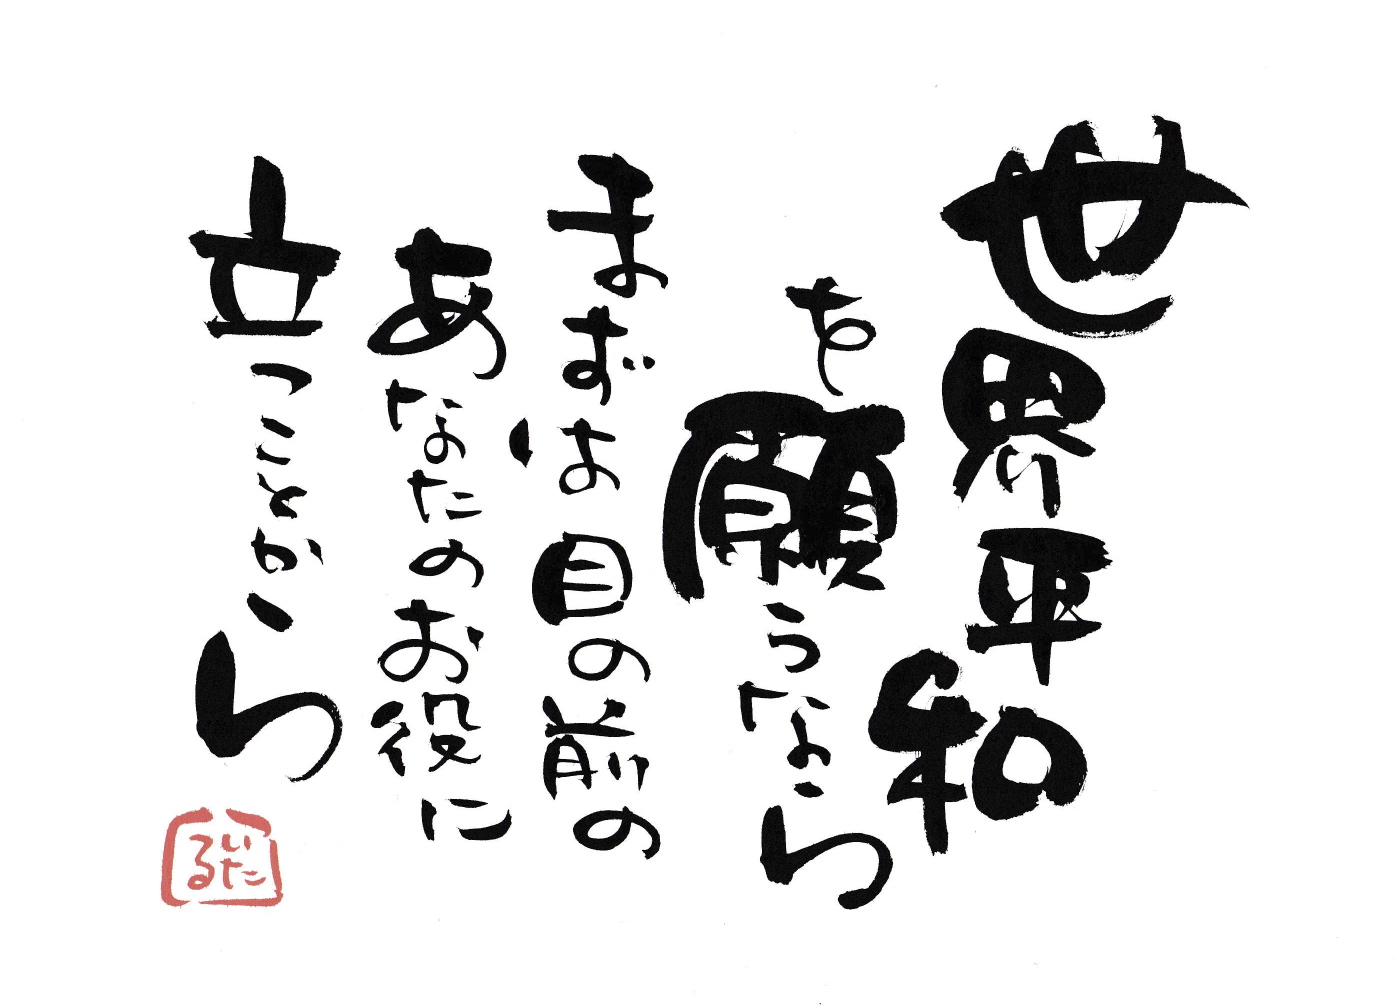 世界平和
を願うなら
まずは目の前の
あなたのお役に
立つことから
いたる